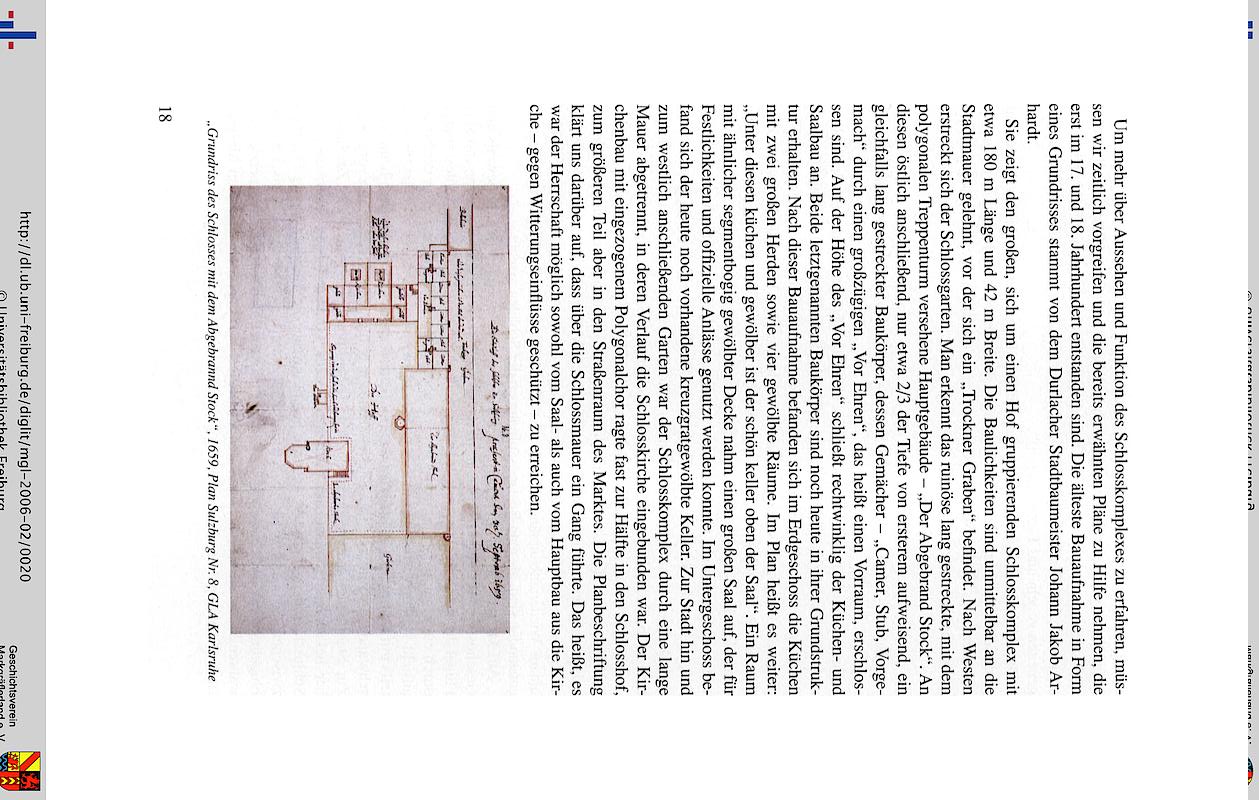 Um mehr über Aussehen und Funktion des Schlosskomplexes zu erfahren, müs-
sen wir zeitlich vorgreifen und die bereits erwähnten Pläne zu Hilfe nehmen, die
erst im 17. und 18. Jahrhundert entstanden sind. Die älteste Bauaufnahme in Form
eines Grundrisses stammt von dem Durlacher Stadtbaumeister Johann Jakob Ar-
hardt.
Sie zeigt den großen, sich um einen Hof gruppierenden Schlosskomplex mit
etwa 180 m Länge und 42 m Breite. Die Baulichkeiten sind unmittelbar an die
Stadtmauer gelehnt, vor der sich ein „Trockner Graben“ befindet. Nach Westen
erstreckt sich der Schlossgarten. Man erkennt das ruinöse lang gestreckte, mit dem
polygonalen Treppenturm versehene Hauptgebäude – „Der Abgebrand Stock“. An
diesen östlich anschließend, nur etwa 2/3 der Tiefe von ersterem aufweisend, ein
gleichfalls lang gestreckter Baukörper, dessen Gemächer – „Camer, Stub, Vorge-
mach“ durch einen großzügigen „Vor Ehren“, das heißt einen Vorraum, erschlos-
sen sind. Auf der Höhe des „Vor Ehren“ schließt rechtwinklig der Küchen- und
Saalbau an. Beide letztgenannten Baukörper sind noch heute in ihrer Grundstruk-
tur erhalten. Nach dieser Bauaufnahme befanden sich im Erdgeschoss die Küchen
mit zwei großen Herden sowie vier gewölbte Räume. Im Plan heißt es weiter:
„Unter diesen küchen und gewölber ist der schön keller oben der Saal“. Ein Raum
mit ähnlicher segmentbogig gewölbter Decke nahm einen großen Saal auf, der für
Festlichkeiten und offizielle Anlässe genutzt werden konnte. Im Untergeschoss be-
fand sich der heute noch vorhandene kreuzgratgewölbte Keller. Zur Stadt hin und
zum westlich anschließenden Garten war der Schlosskomplex durch eine lange
Mauer abgetrennt, in deren Verlauf die Schlosskirche eingebunden war. Der Kir-
chenbau mit eingezogenem Polygonalchor ragte fast zur Hälfte in den Schlosshof,
zum größeren Teil aber in den Straßenraum des Marktes. Die Planbeschriftung
klärt uns darüber auf, dass über die Schlossmauer ein Gang führte. Das heißt, es
war der Herrschaft möglich sowohl vom Saal- als auch vom Hauptbau aus die Kir-
che – gegen Witterungseinflüsse geschützt – zu erreichen.
Der Hof
Garten
„Grundriss des Schlosses mit dem Abgebrannd Stock“, 1659, Plan Sulzburg Nr. 8, GLA Karlsruhe
18
http://dl.ub.uni-freiburg.de/diglit/mgl-2006-02/0020
© Universitätsbibliothek Freiburg
Geschichtsverein
Markgräflerland e. V.